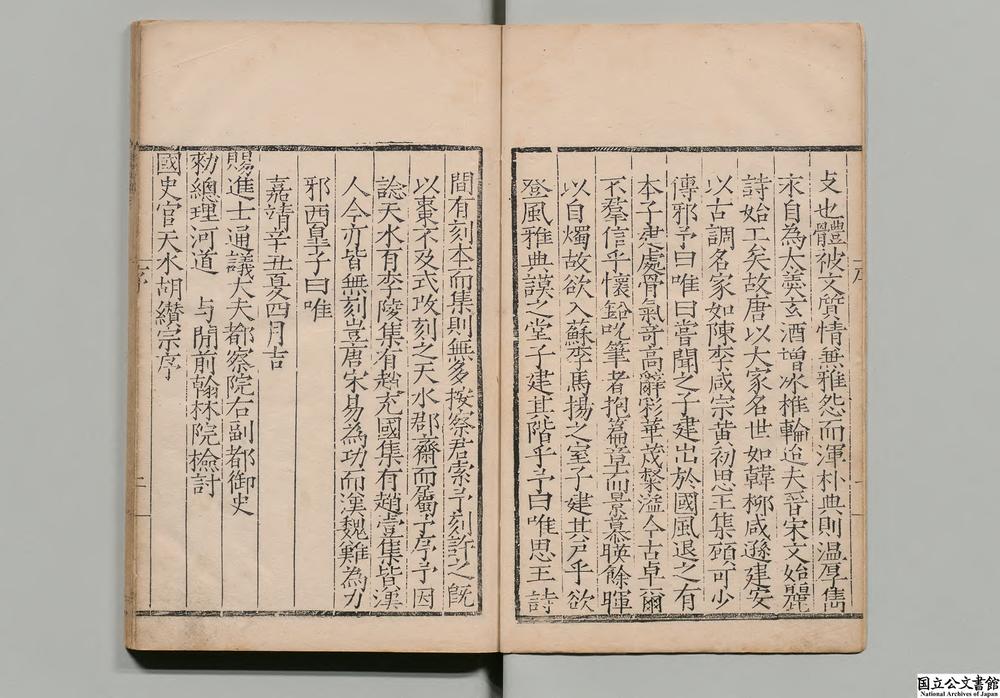 文也體被文質情無雅怨而渾朴典則温厚雋
永自為大羹玄酒增冰椎輪迨夫晉宋文始麗
詩始工矣故唐以大家名世如韓柳咸遜建安
以古調名家如陳李咸宗黄初思王集顧可少
傳邪予曰唯曰嘗聞之子建出於國風退之有
本子建處骨氣奇高辭彩華茂粲溢今古卓爾
不羣信乎懷鉛吮筆者抱篇章而景慕暎餘暉
以自燭故欲入蘇李馬揚之室子建其戶乎欲
登風雅典謨之堂子建其階乎予曰唯思王詩
序
間有刻本而集則無多按察君索予刻許之既
以棗不及式改刻之天水郡齋而屬予序予因
諗天水有李陵集有趙充國集有趙壹集皆漢
人今亦皆無刻豈唐宋易為功而漢魏難為力
邪西皐子曰唯
嘉靖辛丑夏四月吉
賜進士通議大夫都察院右副都御史
勑總理河道 与閒前翰林院檢討
國史官天水胡纘宗序
序
二
国立公文書館
National Archives of Japan